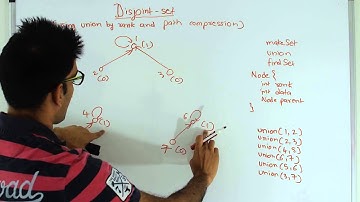 Disjoint-set
union by rank and path compression)
1
(1)
2
(0)
3
(0)
4
6
(1)
7
(0)
makeSet
union
findSet
Node{
int rank
int data
Node parent
}
union(1,2)
union(2,3)
union(4,5)
union(6,7)
union(5,6)
union(3,7)